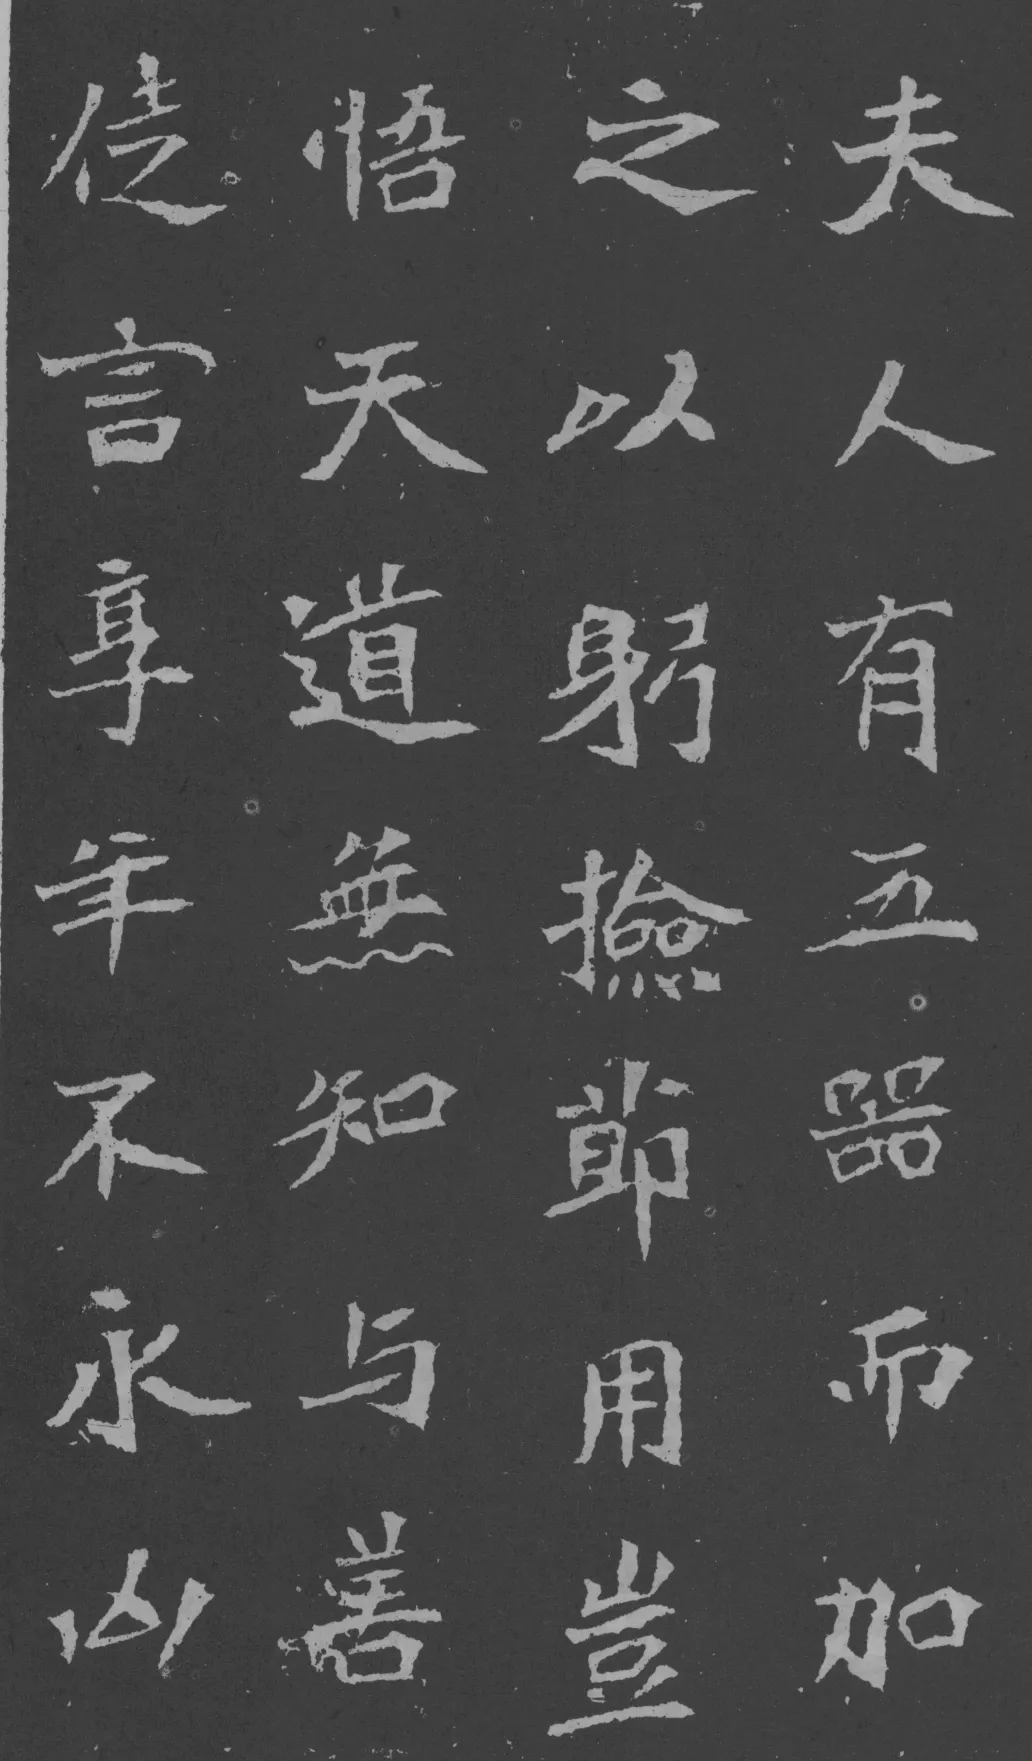 夫人有五器而加
之以躬撿節用豈
悟天道無知与善
徒言享年不永以